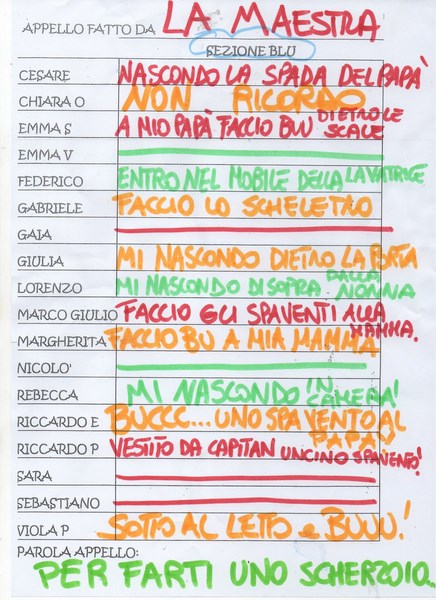 APPELLO FATTO DA LA MAESTRA
SEZIONE BLU
CESARE NASCONDO LA SPADA DEL PAPÀ
CHIARA O NON RICORDO
EMMA S A MIO PAPÀ FACCIO BUU DIETRO LE SCALE
EMMA V
FEDERICO ENTRO NEL MOBILE DELLA LAVATRICE
GABRIELE FACCIO LO SCHELETRO
GAIA
GIULIA MI NASCONDO DIETRO LA PORTA
LORENZO MI NASCONDO DI SOPRA DALLA NONNA
MARCO GIULIO FACCIO GLI SPAVENTI ALLA MAMMA.
MARGHERITA FACCIO BU A MIA MAMMA
NICOLO'
REBECCA MI NASCONDO IN CAMERA!
RICCARDO E BUCCC... UNO SPAVENTO AL PAPÀ
RICCARDO P VESTITO DA CAPITAN UNCINO SPAVENTO!
SARA
SEBASTIANO
VIOLA P SOTTO AL LETTO e BUUU!
PAROLA APPELLO:
PER FARTI UNO SCHERZO IO..